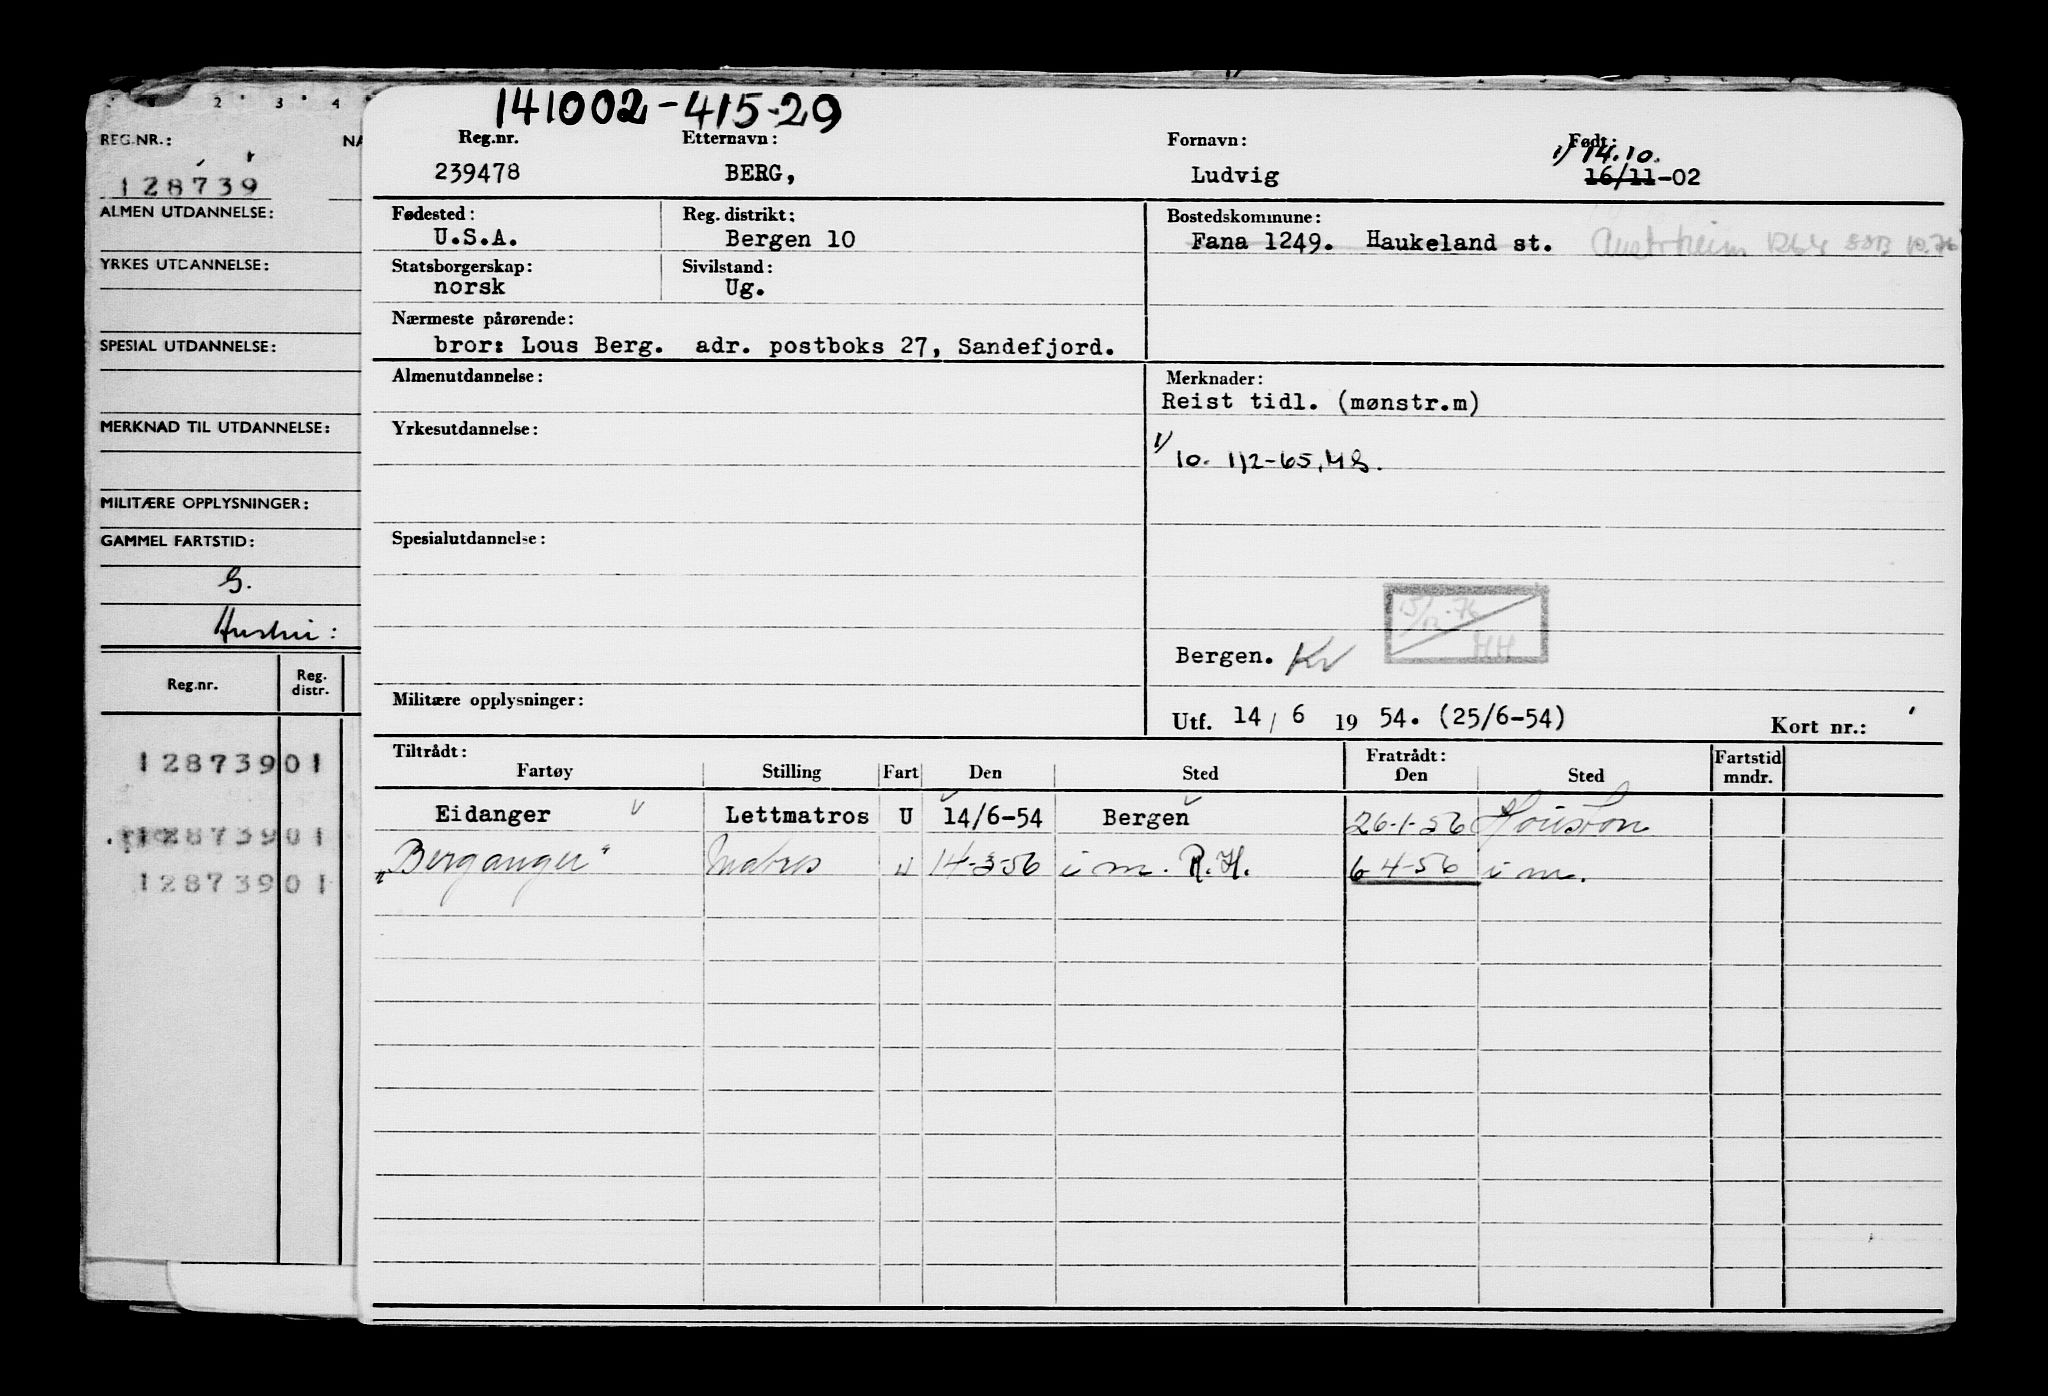 2 3 4
141002-415-29
REG.NR.: NA
128739
ALMEN UTDANNELSE:
YRKES UTDANNELSE:
SPESIAL UTDANNELSE:
MERKNAD TIL UTDANNELSE:
MILITÆRE OPPLYSNINGER:
GAMMEL FARTSTID:
Reg.nr. Reg. distr.
12873901
12873901
12873901
Reg.nr. Etternavn: Fornavn: Født:
1) 14.10.
239478 BERG, Ludvig 16/11-02
Fødested: Reg. distrikt: Bostedskommune:
U.S.A. Bergen 10 Fana 1249. Haukeland st. Austrheim 1264 SSB 10.76
Statsborgerskap: Sivilstand:
norsk Ug.
Nærmeste pårørende:
bror: Lous Berg. adr. postboks 27, Sandefjord.
Almenutdannelse: Merknader:
Reist tidl. (mønstr.m)
Yrkesutdannelse:
1) 10. 1/2-65, MS.
Spesialutdannelse:
15/12-76
HH
Bergen. Kv
Militære opplysninger:
Utf. 14/6 1954. (25/6-54) Kort nr.:
Tiltrådt: Fratrådt: Fartstid mndr.
Fartøy Stilling Fart Den Sted Den Sted
Eidanger Lettmatros U 14/6-54 Bergen 26-1-56 Houston
"Berganger" Matros U 14-3-56 i m. R.H. 6-4-56 i m.